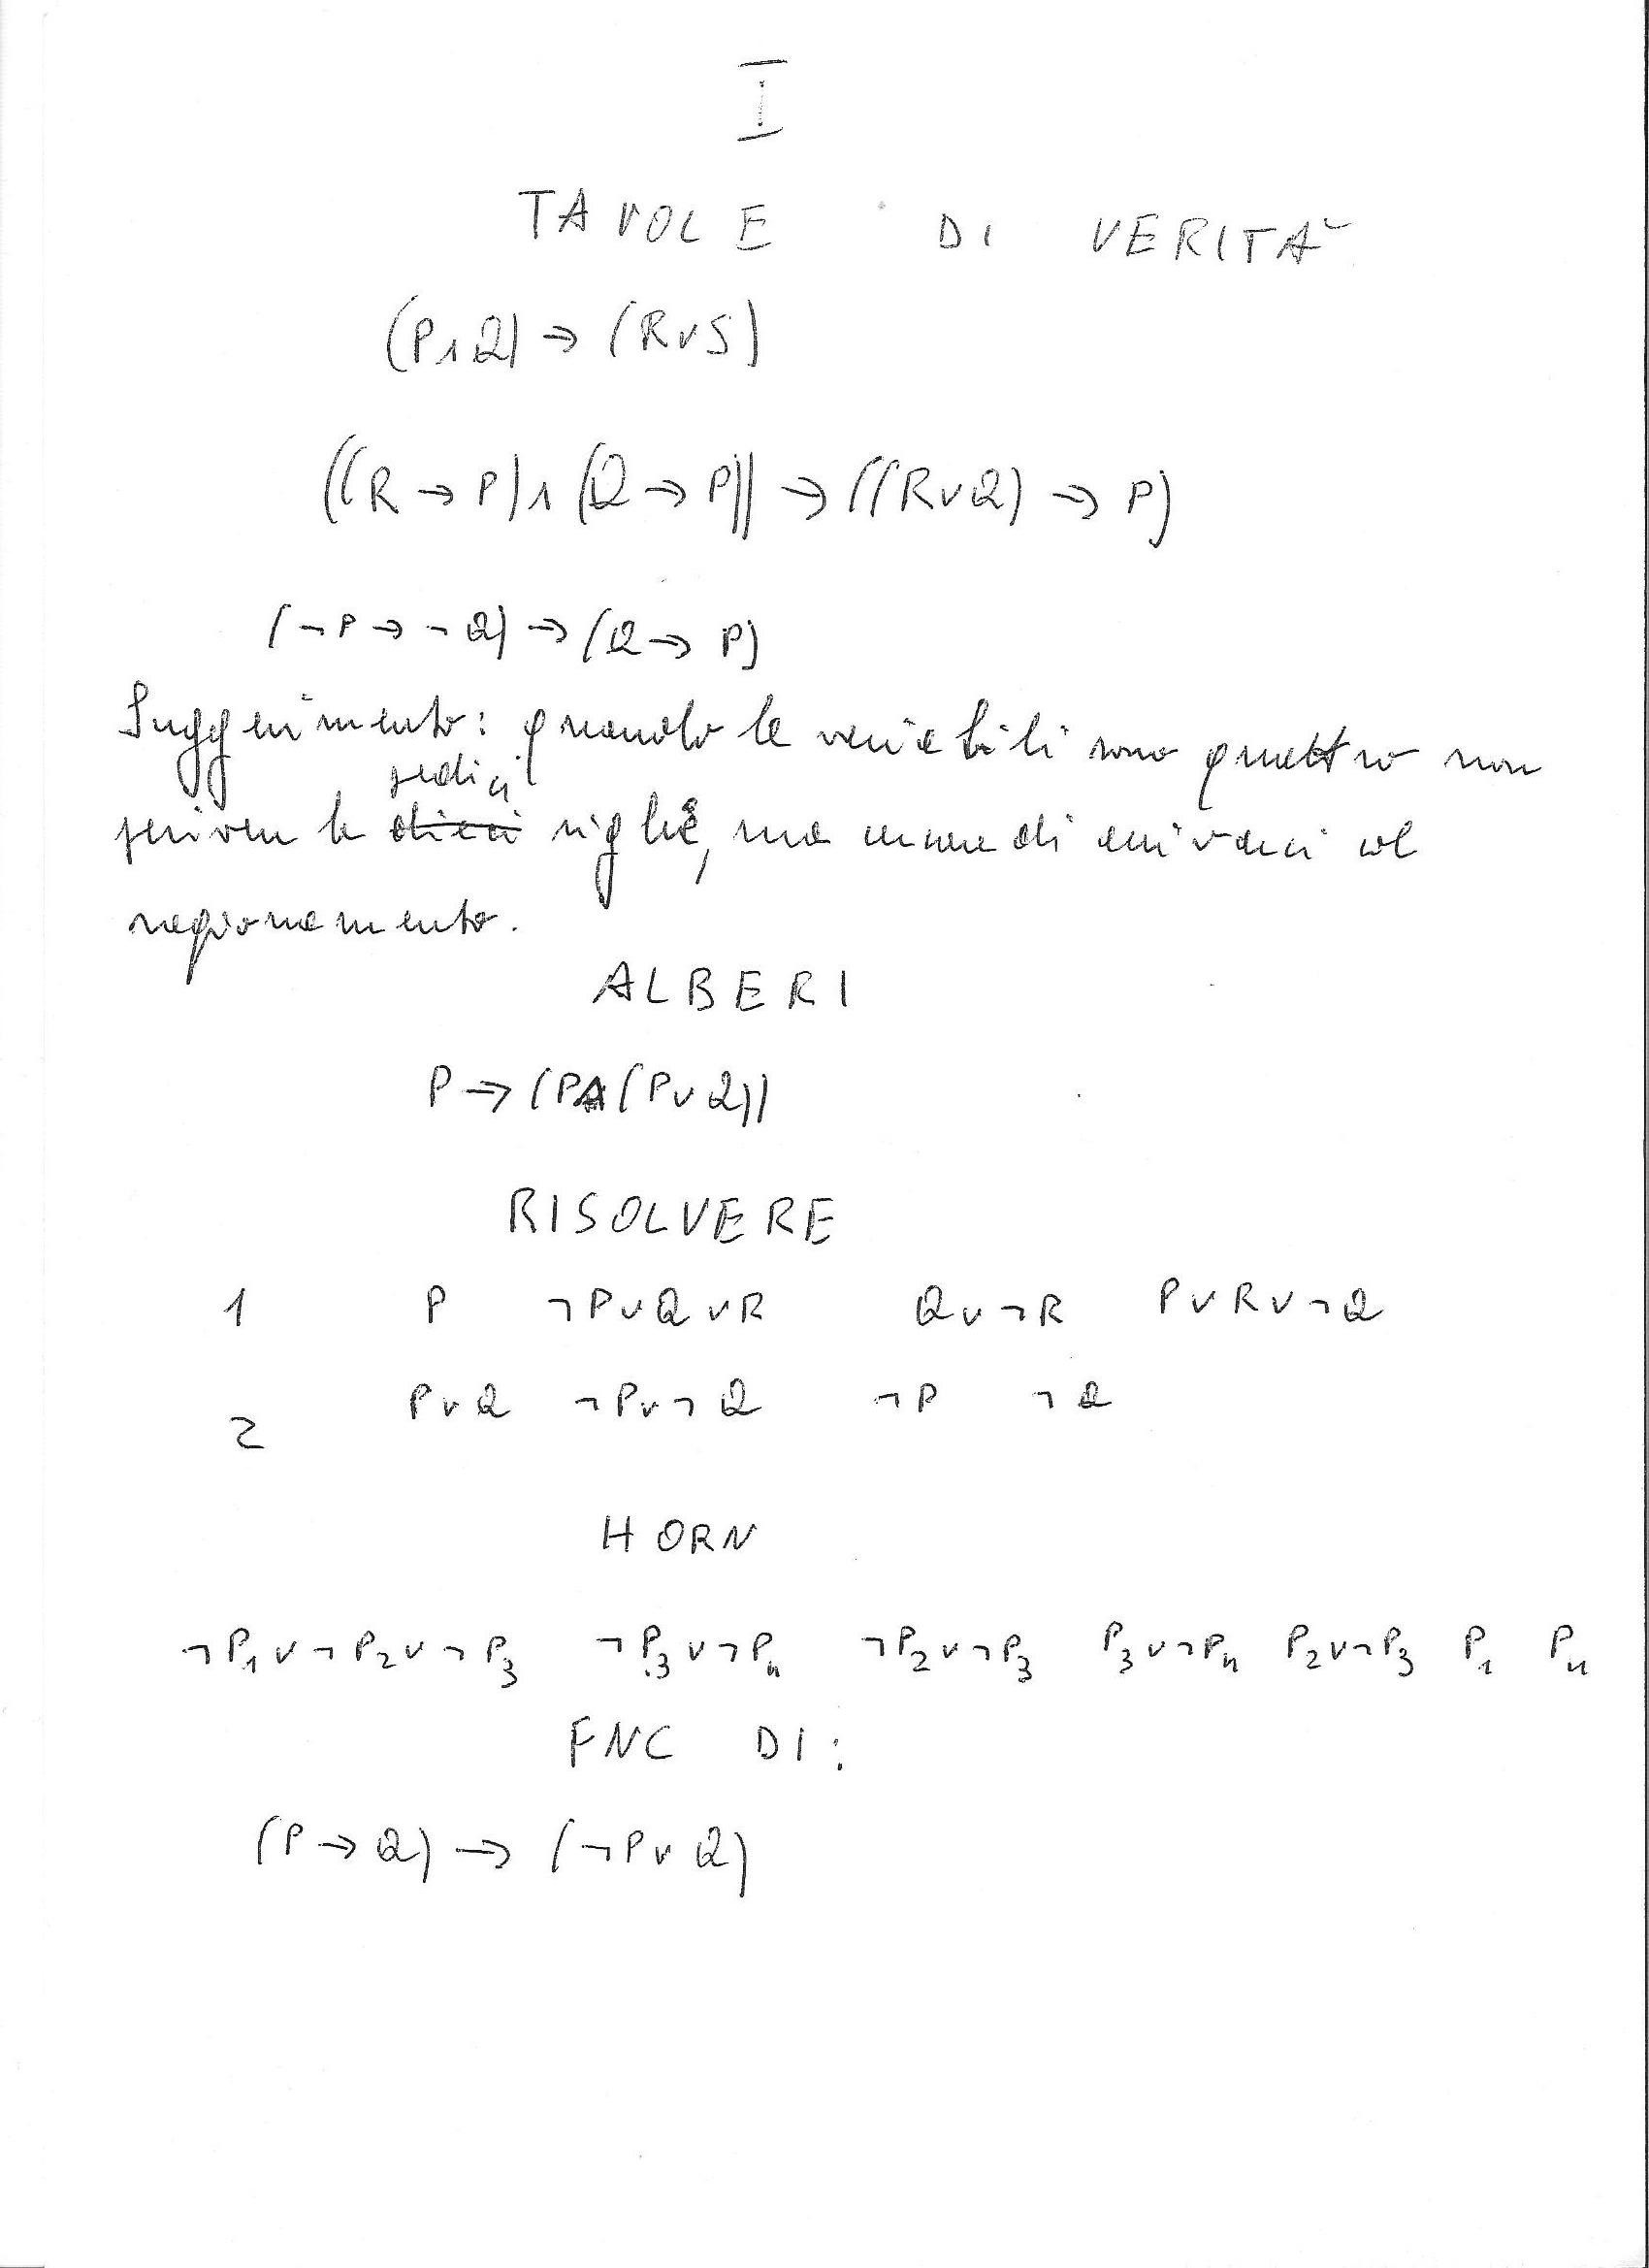 I
TAVOLE DI VERITÀ
(P∧Q) → (R∨S)
((R → P)∧(Q → P)) → ((R∨Q) → P)
(¬P → ¬Q) → (Q → P)
Suggerimento: quando le variabili sono quattro non
sedici
scriven le dieci righe, ma cercare di arrivarci col
ragionamento.
ALBERI
P → (P∧(P∨Q))
RISOLVERE
1 P ¬P∨Q∨R Q∨¬R P∨R∨¬Q
2 P∨Q ¬P∨¬Q ¬P ¬Q
HORN
¬P₁∨¬P₂∨¬P₃ ¬P₃∨¬P₄ ¬P₂∨¬P₃ P₃∨¬P₄ P₂∨¬P₃ P₁ P₄
FNC DI:
(P → Q) → (¬P∨Q)